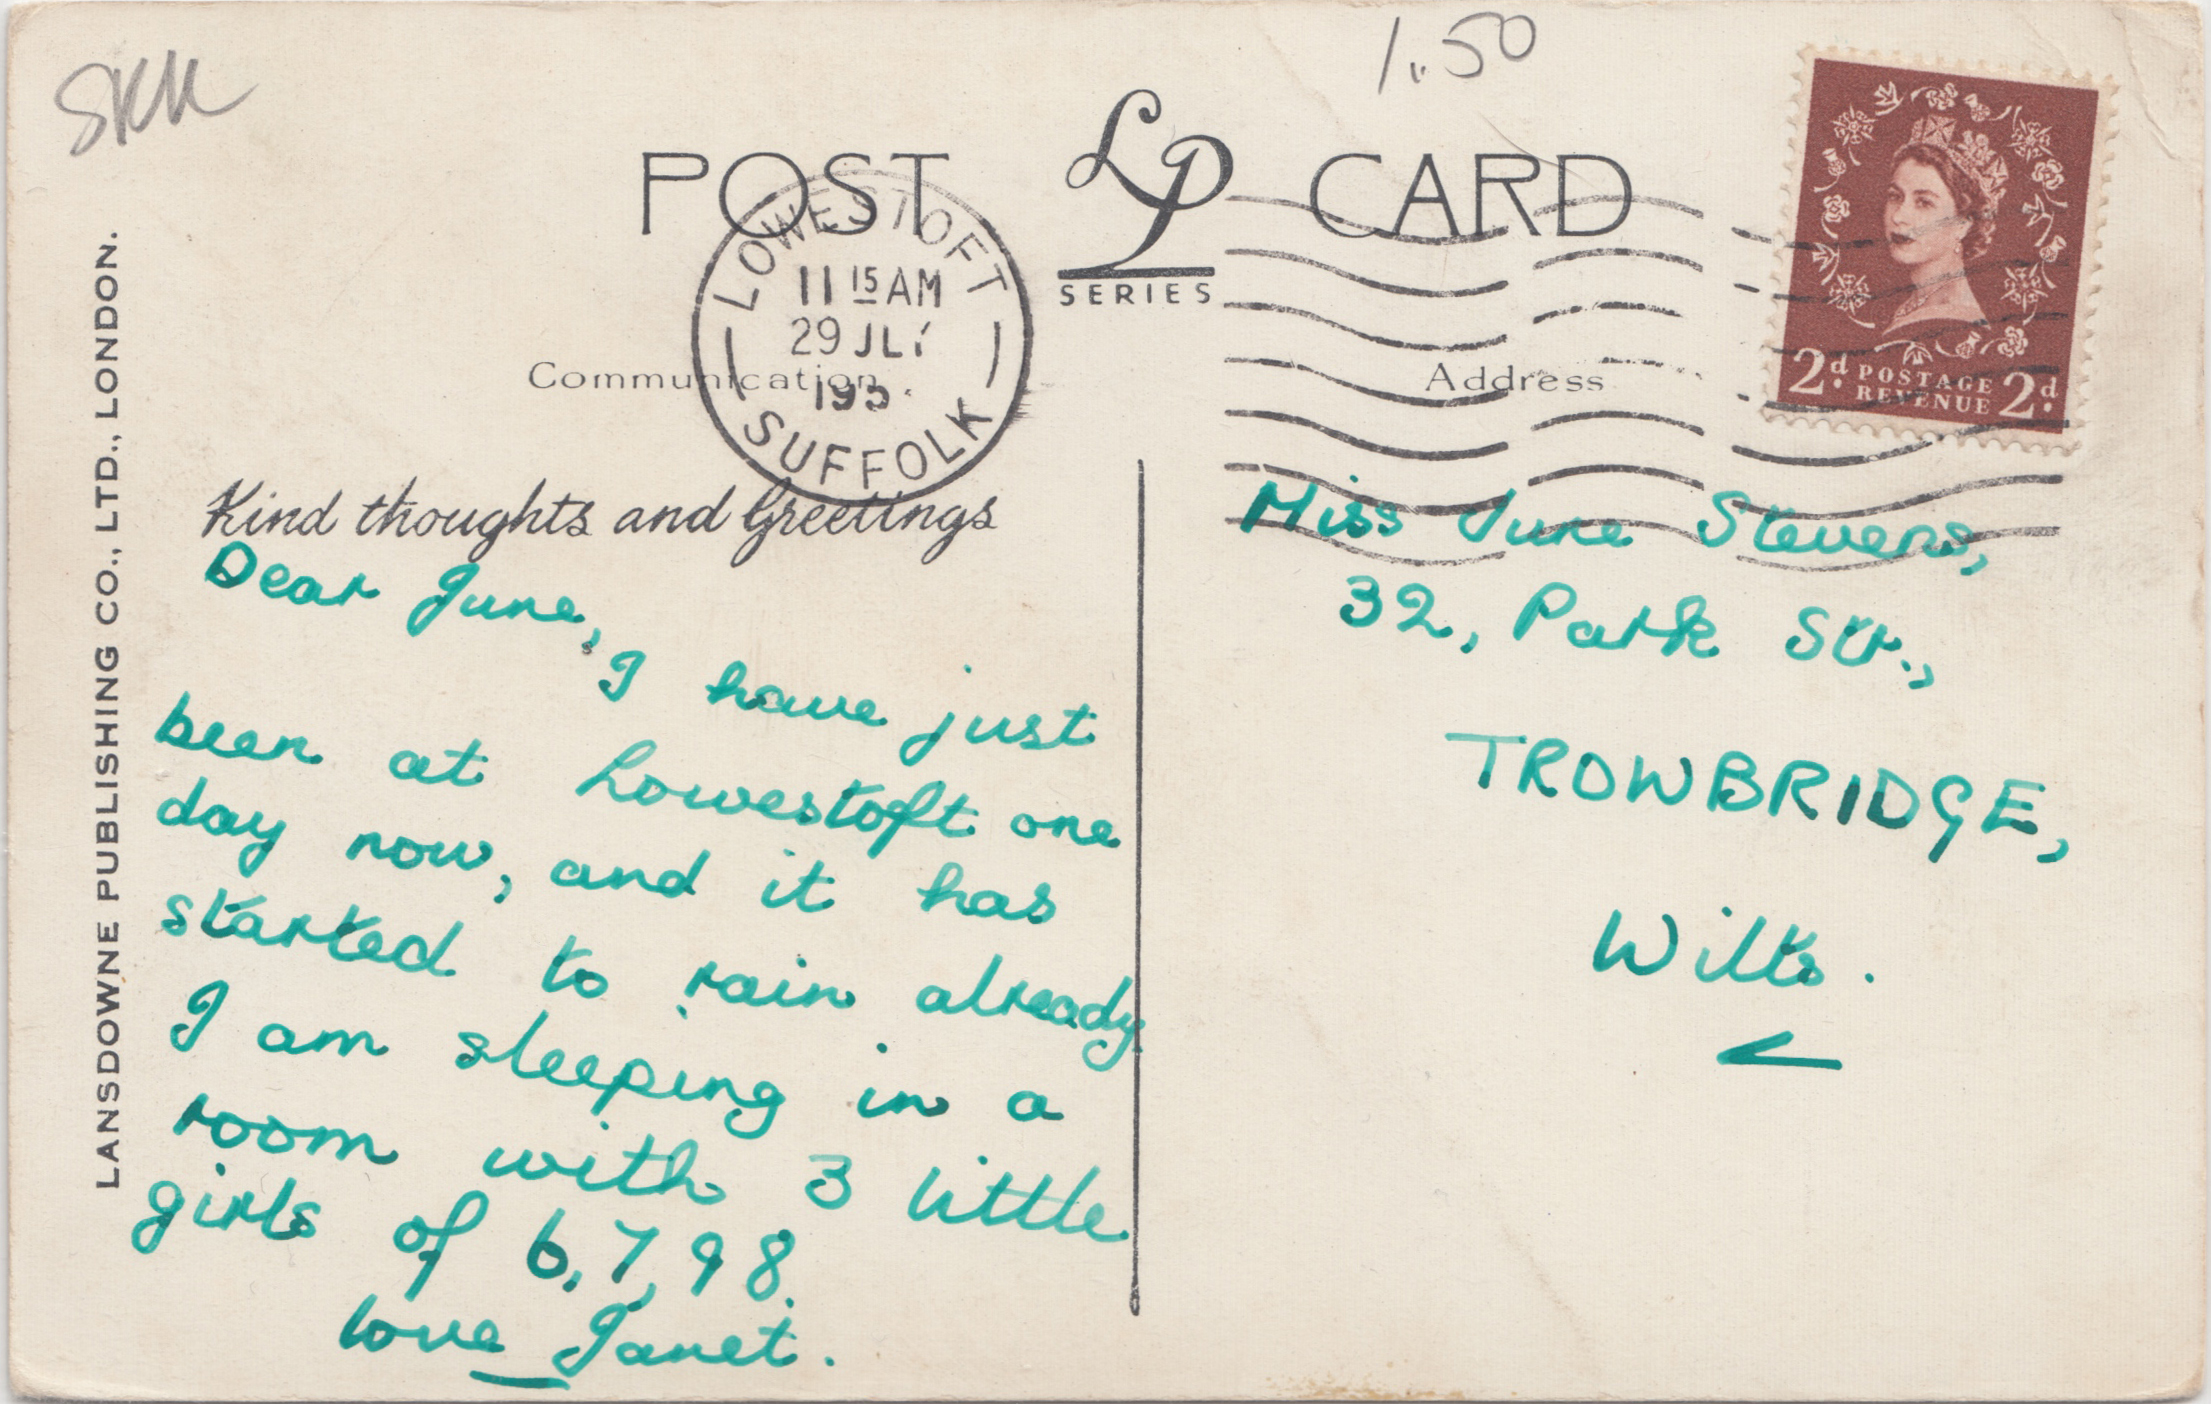 SKK
1.50
POST CARD
LP
SERIES
LOWESTOFT
11 15 AM
29 JLY
195
SUFFOLK
2d. POSTAGE 2d.
REVENUE
Communication
Address
LANSDOWNE PUBLISHING CO., LTD., LONDON.
Kind thoughts and Greetings
Dear June,
I have just
been at Lowestoft one
day now, and it has
started to rain already.
I am sleeping in a
room with 3 little
girls of 6, 7, 9 8.
love Janet.
Miss June Stevens,
32, Park Str.,
TROWBRIDGE,
Wilts.